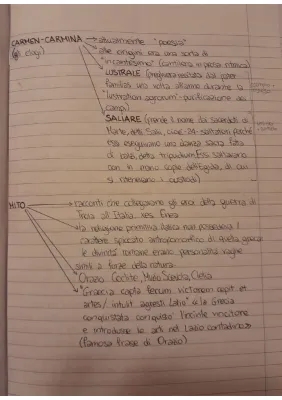 CARMEN-CARMINA → attualmente "poesia"
(es. elogi) alle origini era una sorta di
"incantesimo" (cantilena in prosa ritmica)
LUSTRALE (preghiera recitata dal pater
familias una volta all'anno durante la
"lustratio agrorum" - purificazione dei
campi)
SALIARE (prende il nome dai sacerdoti di
Marte, detti Salii, saltatori perché
essi eseguivano una danza sacra fatta
di balzi, detta tripudium. Essi saltavano
con in mano copie dell'Egida, di cui
si ritenevano i custodi)
MITO → racconti che collegano gli eroi della guerra di
Troia all'Italia es. Enea
la religione primitiva italica non possedeva il
carattere spiccato antropomorfico di quella greca:
le divinità romane erano personalità vaghe
simili a forze della natura.
Orazio Coclite, Muzio Scevola, Clelia
"Graecia capta ferum victorem cepit et
artes intulit agresti Latio" → la Grecia
conquistata conquistò l'incivile vincitore
e introdusse le arti nel Lazio contadino
(famosa frase di Orazio)